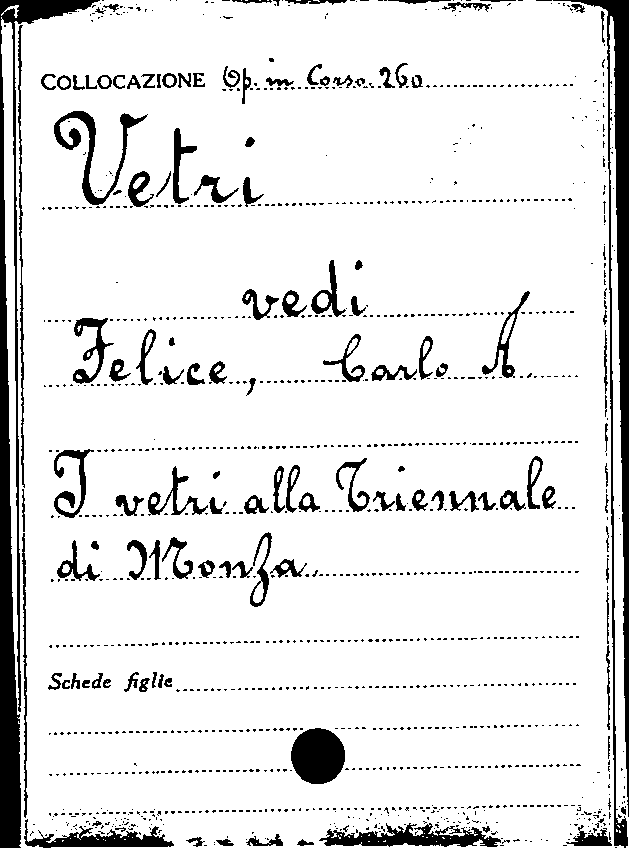 COLLOCAZIONE Op. in Corso. 260
Vetri
vedi
Felice, Carlo A.
I vetri alla Triennale
di Monza.
Schede figlie